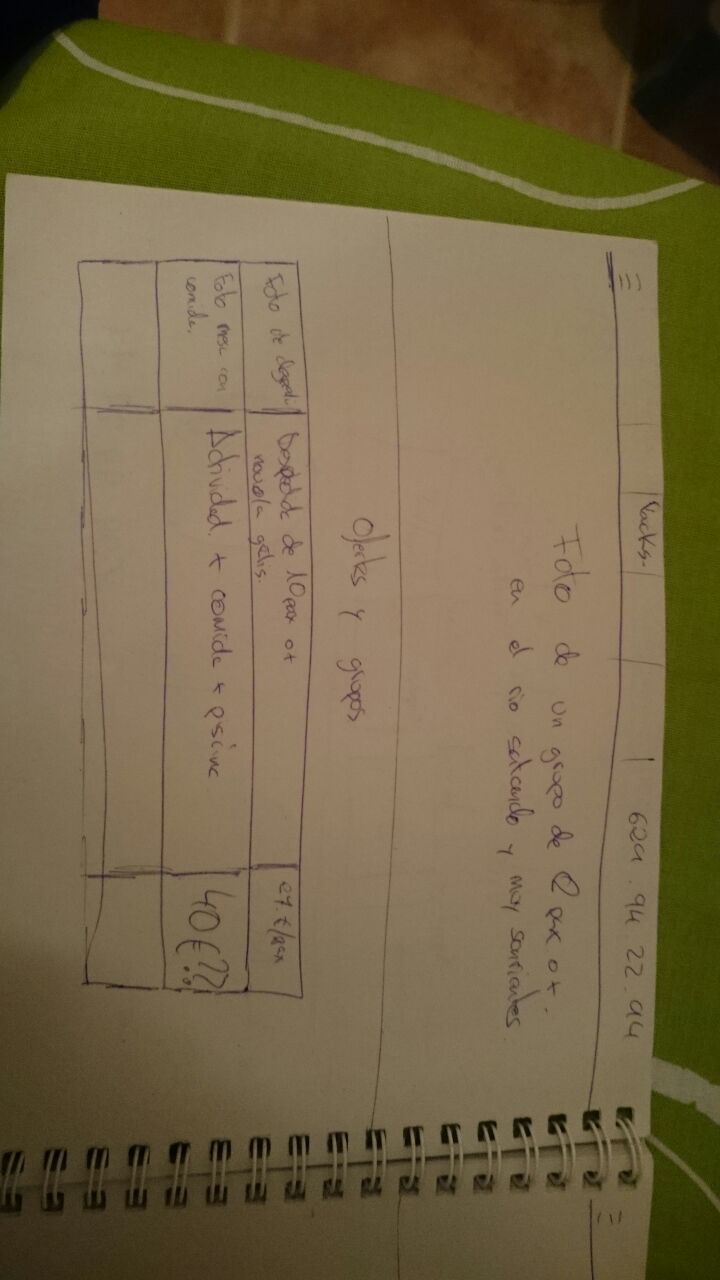 Packs.
624.94.22.94
Foto de un grupo de pax o +.
en el rio saltando y muy sonrientes.
Ofertas y grupos
Foto de
Despedida de 10 pax o +
novi@ gratis.
€/pax
Foto mesa con
comida.
Actividad + comida + piscina
40€??